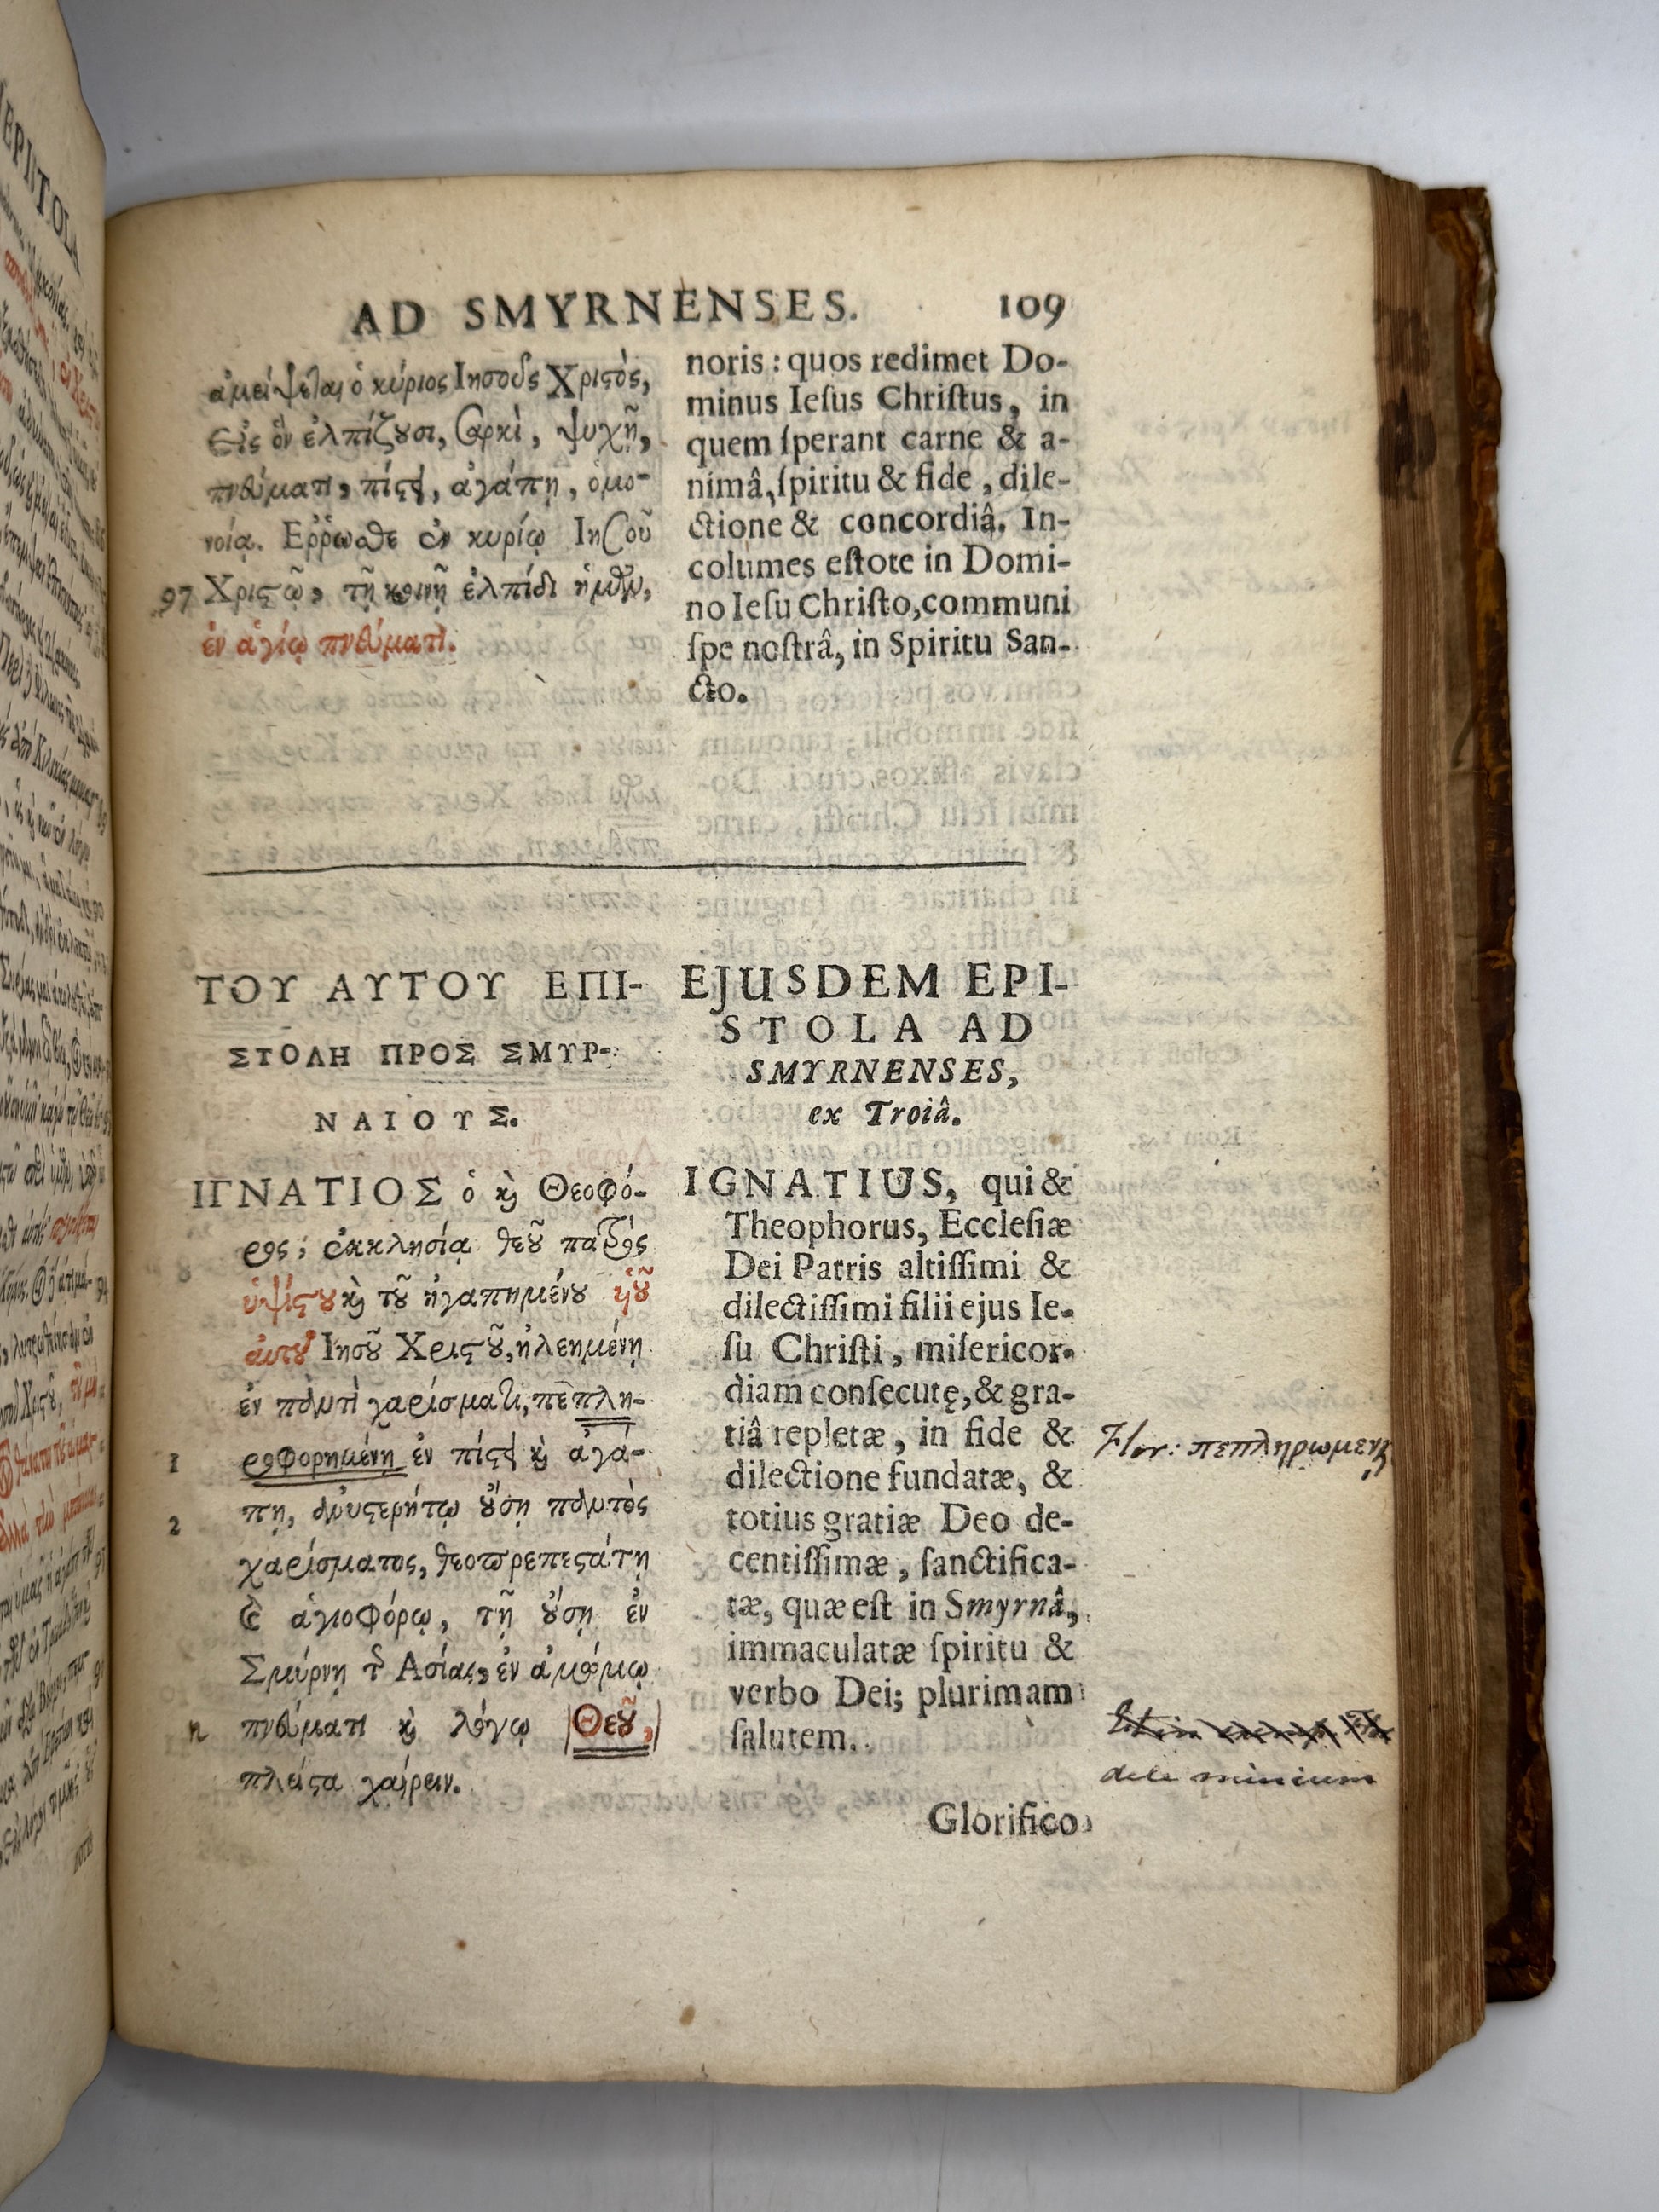 AD SMYRNENSES. 109
ἀμείψεται ὁ κύριος Ιησοῦς Χριστὸς,
εἰς ὃν ἐλπίζουσι, σαρκὶ, ψυχῇ,
πνεύματι, πίστει, ἀγάπῃ, ὁμο-
νοίᾳ. Ἐῤῥωσθε ἐν κυρίῳ Ιησοῦ
97 Χριστῷ, τῇ κοινῇ ἐλπίδι ἡμῶν,
ἐν ἁγίῳ πνεύματι.
noris : quos redimet Do-
minus Ieſus Chriſtus, in
quem ſperant carne & a-
nimâ, ſpiritu & fide, dile-
ctione & concordiâ. In-
columes eſtote in Domi-
no Ieſu Chriſto, communi
ſpe noſtrâ, in Spiritu San-
cto.
ΤΟΥ ΑΥΤΟΥ ΕΠΙ-
ΣΤΟΛΗ ΠΡΟΣ ΣΜΥΡ-
ΝΑΙΟΥΣ.
ΙΓΝΑΤΙΟΣ ὁ καὶ Θεοφό-
ρος, ἐκκλησίᾳ θεοῦ πατρὸς
ὑψίστου καὶ τοῦ ἠγαπημένου υἱοῦ
αὐτοῦ Ιησοῦ Χριστοῦ, ἠλεημένῃ
ἐν παντὶ χαρίσματι, πεπλη-
1 ροφορημένῃ ἐν πίστει καὶ ἀγά-
2 πῃ, ἀνυστερήτῳ οὔσῃ παντὸς
χαρίσματος, θεοπρεπεστάτῃ
καὶ ἁγιοφόρῳ, τῇ οὔσῃ ἐν
Σμύρνῃ τῆς Ασίας, ἐν ἀμώμῳ
n πνεύματι καὶ λόγῳ Θεοῦ,
πλεῖστα χαίρειν.
EJUSDEM EPI-
STOLA AD
SMYRNENSES,
ex Troiâ.
IGNATIUS, qui &
Theophorus, Eccleſiæ
Dei Patris altiſſimi &
dilectiſſimi filii ejus Ie-
ſu Chriſti, miſericor-
diam conſecutę, & gra-
tiâ repletæ, in fide &
dilectione fundatæ, &
totius gratiæ Deo de-
centiſſimæ, ſanctifica-
tæ, quæ eſt in Smyrnâ,
immaculatæ ſpiritu &
verbo Dei; plurimam
ſalutem.
Glorifico
Flor: πεπληρωμενῃ
dele minium